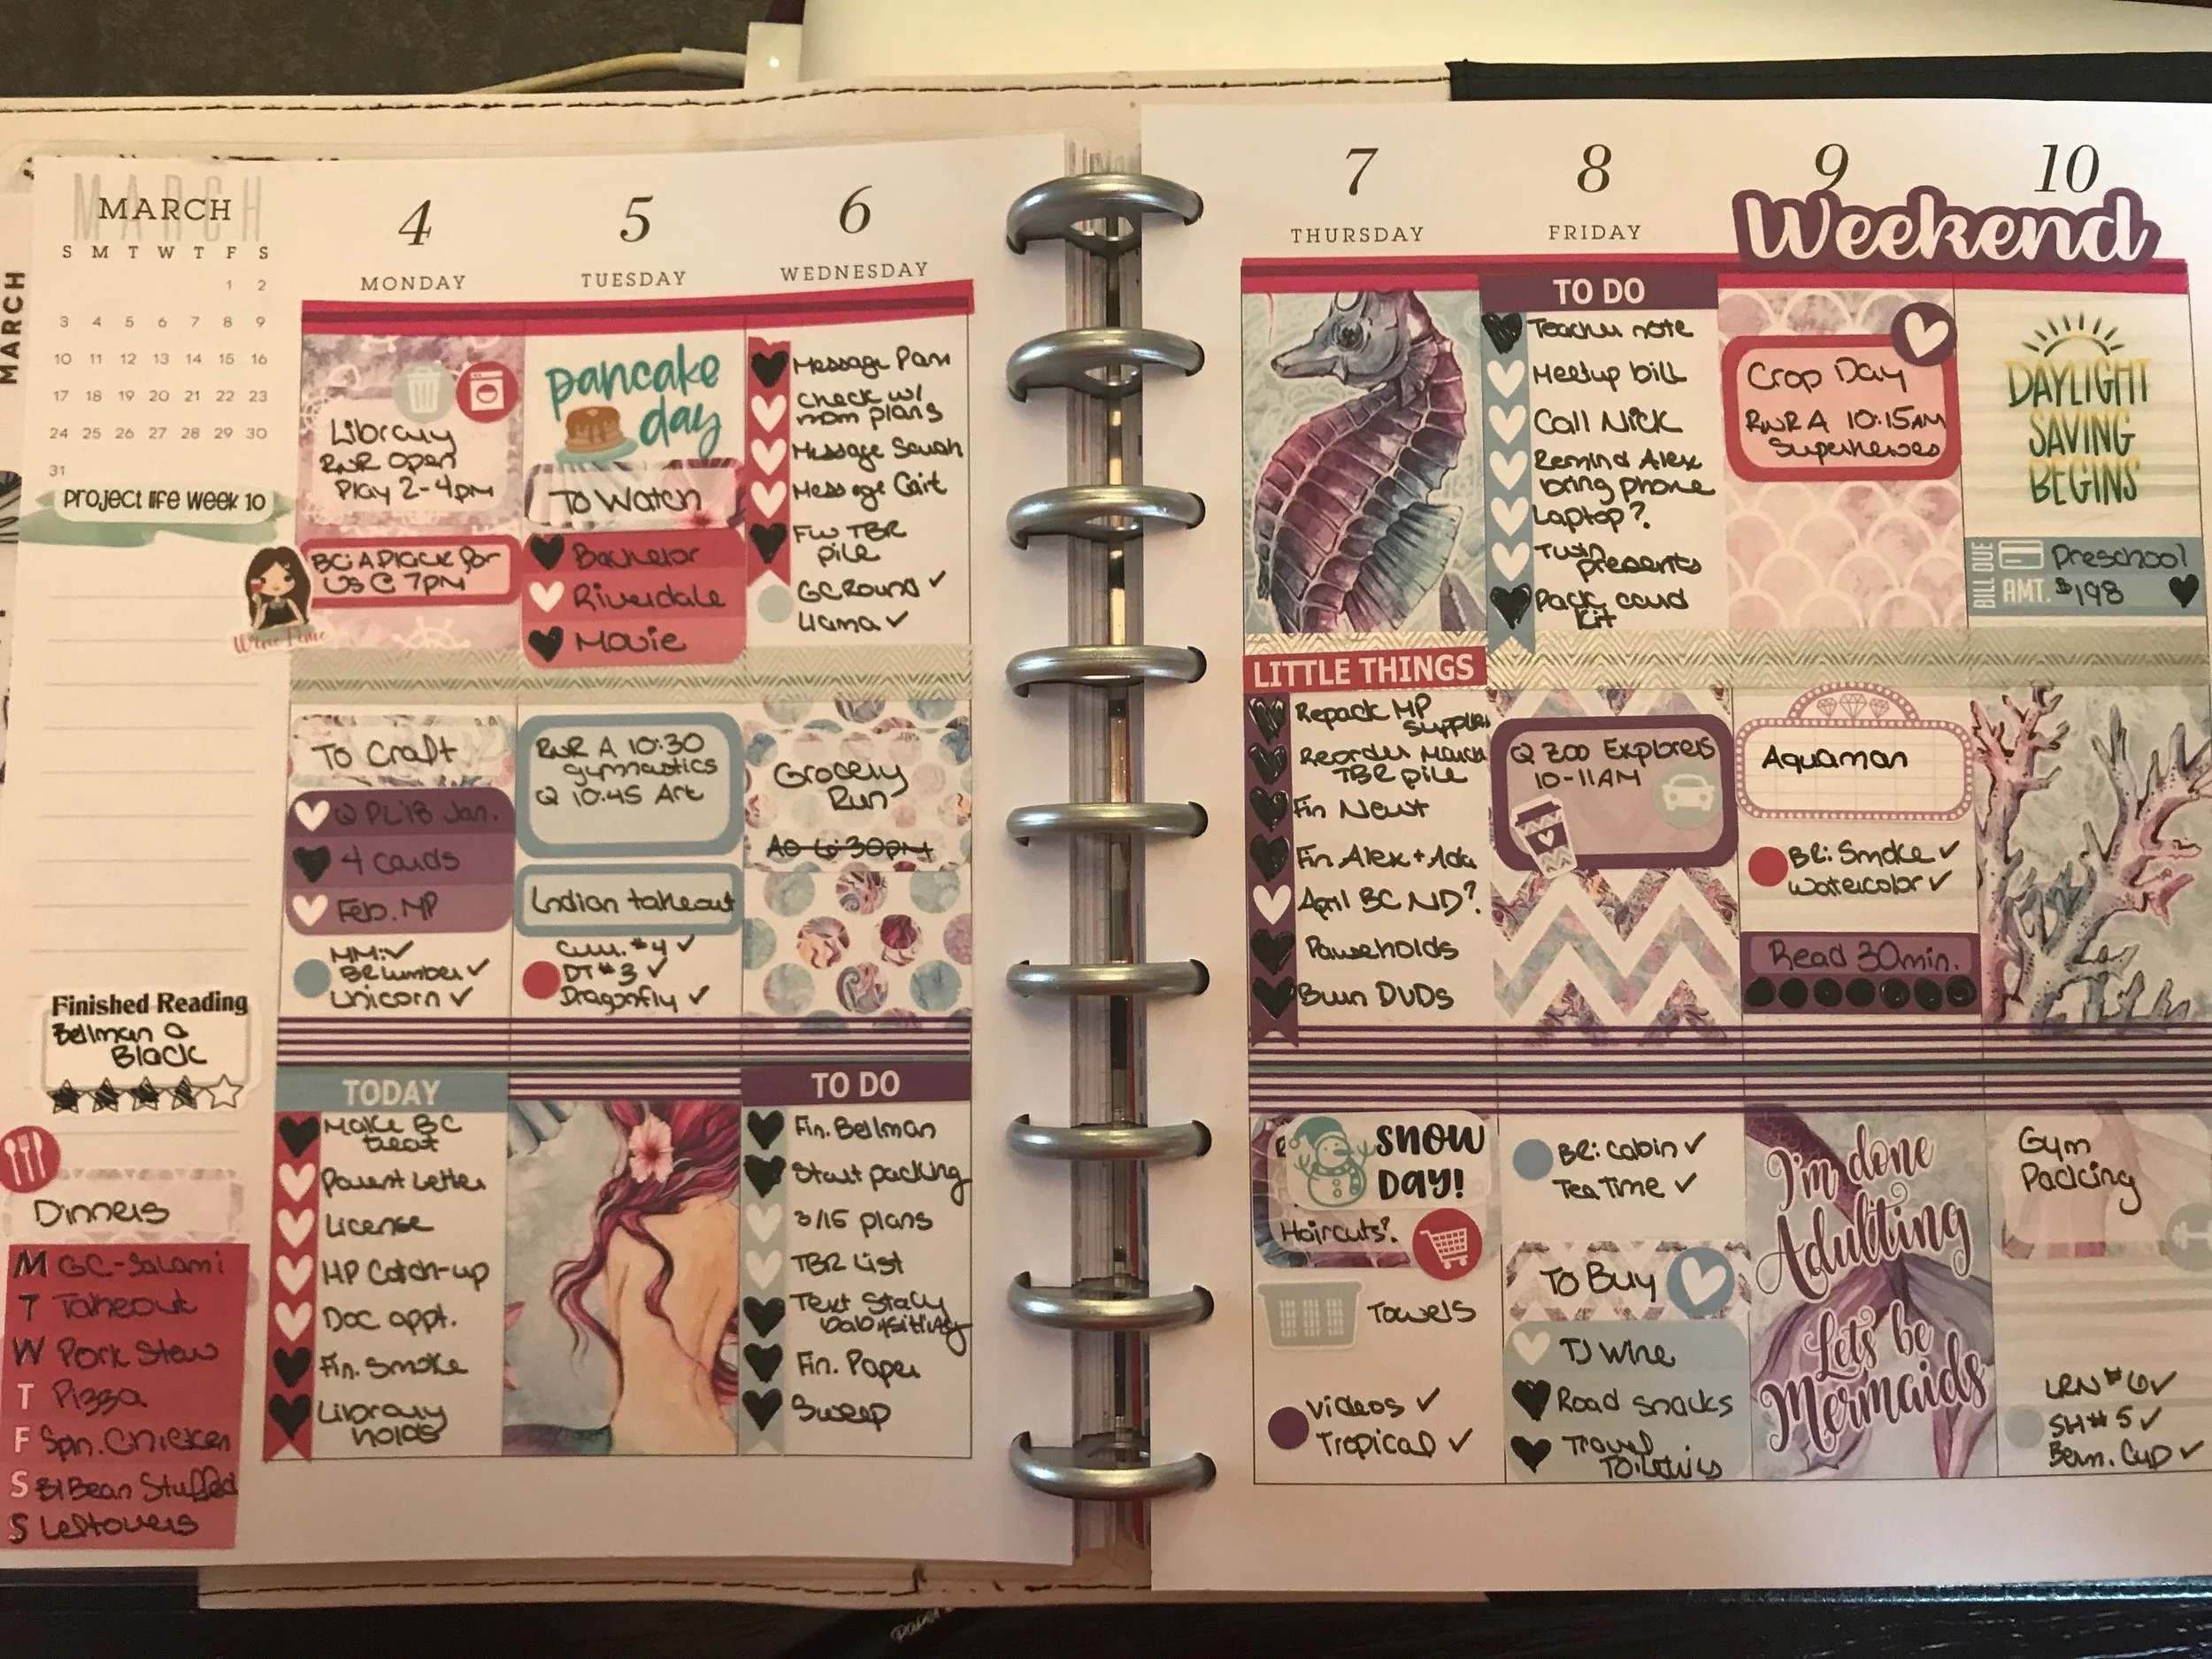 MARCH
MARCH
MARCH
S M T W T F S
1 2
3 4 5 6 7 8 9
10 11 12 13 14 15 16
17 18 19 20 21 22 23
24 25 26 27 28 29 30
31
Project life week 10
Finished Reading
Bellman &
Black
Dinners
M GC-Salami
T Takeout
W Pork Stew
T Pizza
F Spn. Chicken
S Bl Bean Stuffed
S Leftovers
4
MONDAY
Library
RWR Open
Play 2-4pm
BC: A Place for
Us @ 7PM
Wine Time
To Craft
Q PL'18 Jan.
4 cards
Feb. MP
MM: ✓
BR Lumber ✓
Unicorn ✓
TODAY
Make BC
treat
Parent Letter
License
HP Catch-up
Doc appt.
Fin. Smoke
Library
holds
5
TUESDAY
pancake
day
To Watch
Bachelor
Riverdale
Movie
RWR A 10:30
gymnastics
Q 10:45 Art
Indian takeout
#4 ✓
DT #3 ✓
Dragonfly ✓
6
WEDNESDAY
Message Pam
Check w/
mom plans
Message Sarah
Message Cait
FW TBR
pile
GC Round ✓
Llama ✓
Grocery
Run
AO 6:30pm
TO DO
Fin. Bellman
Start packing
3/15 plans
TBR List
Text Stacy
babysitting
Fin. Paper
Sweep
7
THURSDAY
LITTLE THINGS
Repack MP
Supplies
Reorder March
TBR pile
Fin Newt
Fin. Alex + Ada
April BC ND?
Pawseholds
Burn DVDs
SNOW
DAY!
Haircuts?
Towels
Videos ✓
Tropical ✓
8
FRIDAY
TO DO
Teacher note
Meetup bill
Call Nick
Remind Alex
bring phone
Laptop?
Twin
presents
Pack card
Kit
Q ZOO Explorers
10-11AM
BR: Cabin ✓
Tea Time ✓
To Buy
TJ Wine
Road snacks
Travel
Toiletries
9
Weekend
Crop Day
RWR A 10:15AM
Superheroes
Aquaman
BR: Smoke ✓
Watercolor ✓
Read 30min.
I'm done
Adulting
Let's be
Mermaids
10
DAYLIGHT
SAVING
BEGINS
BILL DUE
Preschool
AMT. $198
Gym
Packing
LRN #6 ✓
SH #5 ✓
Bern. Cup ✓